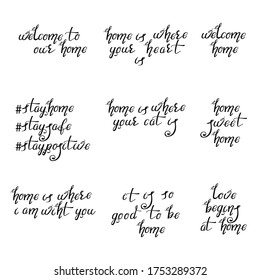 welcome to
our home
home is where
your heart
is
welcome
home
#stayhome
#staysafe
#staypositive
home is where
your cat is
home
sweet
home
home is where
i am wiht you
it is so
good to be
home
love
begins
at home
shutterstock.com · 1753289372